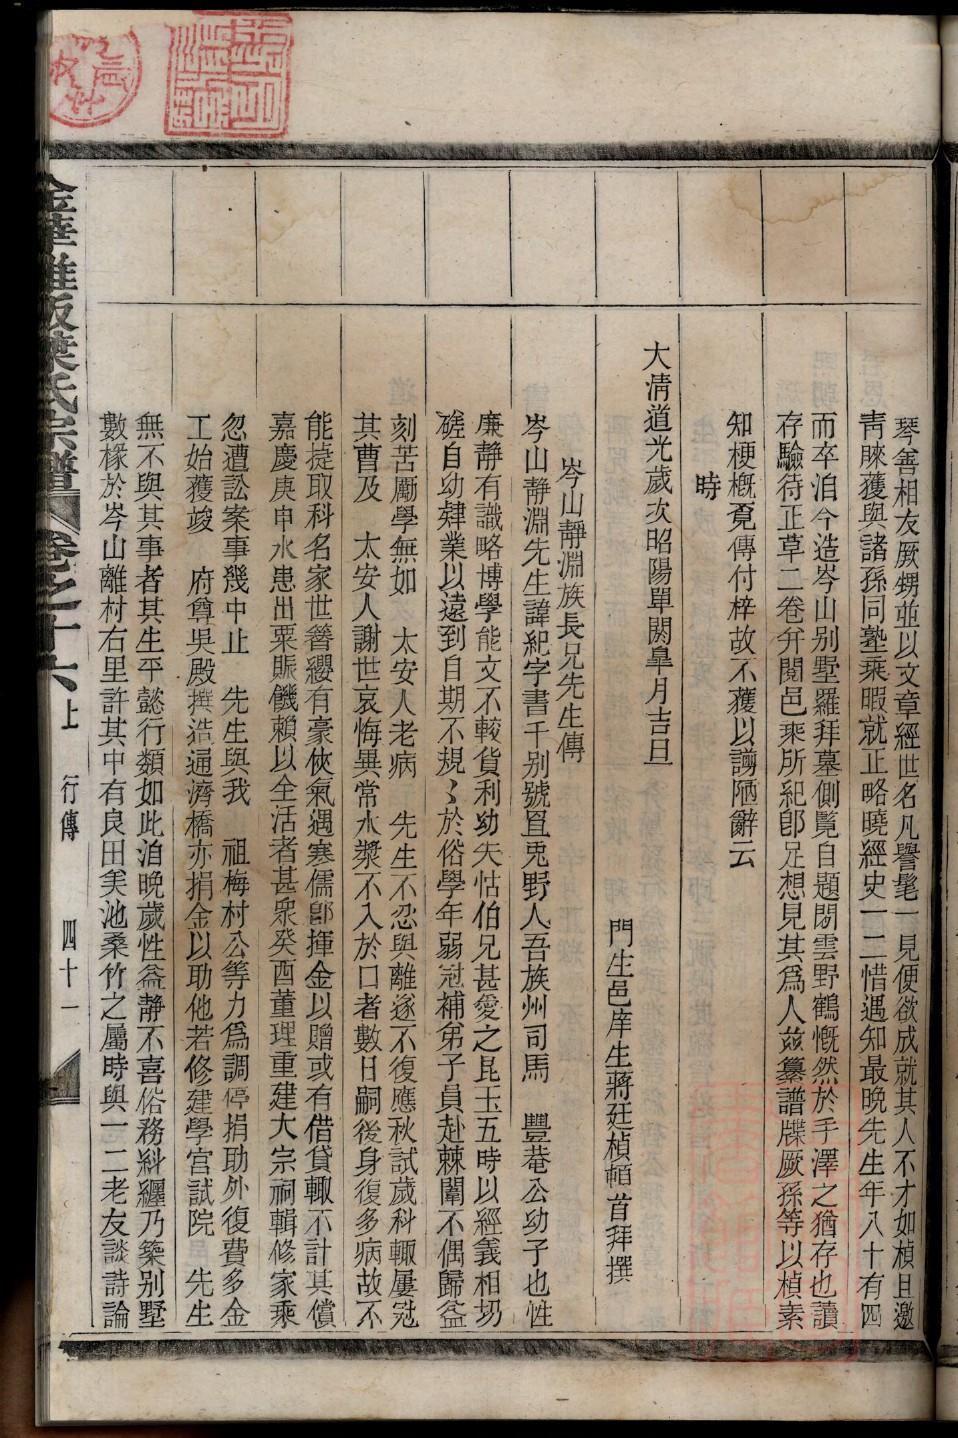 琴善相友厥甥並以文章經世名凡譽髦一見便欲成就其人不才如楨且邀
青睞獲與諸孫同塾乘暇就正略曉經史一二惜遇知最晚先生年八十有四
而卒洎今造岑山別墅羅拜墓側覽自題閒雲野鶴慨然於手澤之猶存也讀
存驗待正草二卷弁閱邑乘所紀卽足想見其爲人茲纂譜牒厥孫等以楨素
知梗槪覔傳付梓故不獲以謭陋辭云
時
大淸道光歲次昭陽單閼皐月吉旦
門生邑庠生蔣廷楨頓首拜撰
岑山靜淵族長兄先生傳
岑山靜淵先生諱紀字書千别號罝兎野人吾族州司馬 豐菴公幼子也性
廉靜有識略博學能文不較貨利幼失怙伯兄甚愛之昆玉五時以經義相切
磋自幼肄業以遠到自期不規〻於俗學年弱冠補弟子員赴棘闈不偶歸益
刻苦勵學無如 太安人老病 先生不忍與離遂不復應秋試歲科輒屢冠
其曹及 太安人謝世哀悔異常水漿不入於口者數日嗣後身復多病故不
能捷取科名家世簪纓有豪俠氣遇寒儒卽揮金以贈或有借貸輒不計其償
嘉慶庚申水患出粟賑饑賴以全活者甚衆癸酉董理重建大宗祠輯修家乘
忽遭訟案事幾中止 先生與我 祖梅村公等力爲調停捐助外復費多金
工始獲竣 府尊吳殿撰造通濟橋亦捐金以助他若修建學宮試院 先生
無不與其事者其生平懿行類如此洎晚歲性益靜不喜俗務糾纒乃築別墅
數椽於岑山離村右里許其中有良田美池桑竹之屬時與一二老友談詩論
金華雅畈葉氏宗譜 卷之十六上 行傳 四十一